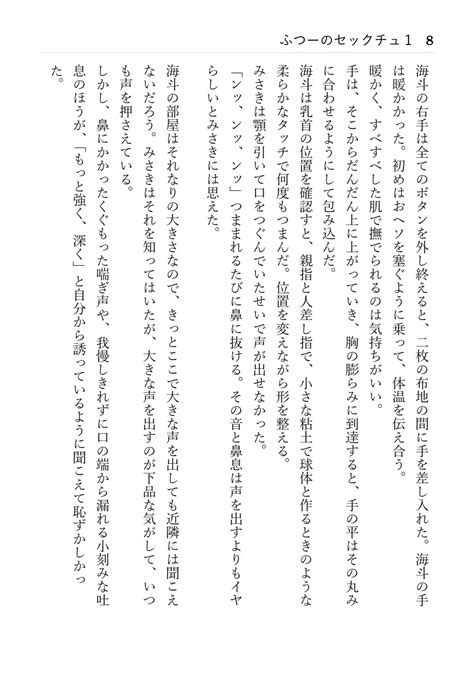 ふつーのセックチュ1 8
海斗の右手は全てのボタンを外し終えると、二枚の布地の間に手を差し入れた。海斗の手
は暖かかった。初めはおヘソを塞ぐように乗って、体温を伝え合う。
暖かく、すべすべした肌で撫でられるのは気持ちがいい。
手は、そこからだんだん上に上がっていき、胸の膨らみに到達すると、手の平はその丸み
に合わせるようにして包み込んだ。
海斗は乳首の位置を確認すと、親指と人差し指で、小さな粘土で球体と作るときのような
柔らかなタッチで何度もつまんだ。位置を変えながら形を整える。
みさきは顎を引いて口をつぐんでいたせいで声が出せなかった。
「ンッ、ンッ、ンッ」つままれるたびに鼻に抜ける。その音と鼻息は声を出すよりもイヤ
らしいとみさきには思えた。
海斗の部屋はそれなりの大きさなので、きっとここで大きな声を出しても近隣には聞こえ
ないだろう。みさきはそれを知ってはいたが、大きな声を出すのが下品な気がして、いつ
も声を押さえている。
しかし、鼻にかかったくぐもった喘ぎ声や、我慢しきれずに口の端から漏れる小刻みな吐
息のほうが、「もっと強く、深く」と自分から誘っているように聞こえて恥ずかしかっ
た。